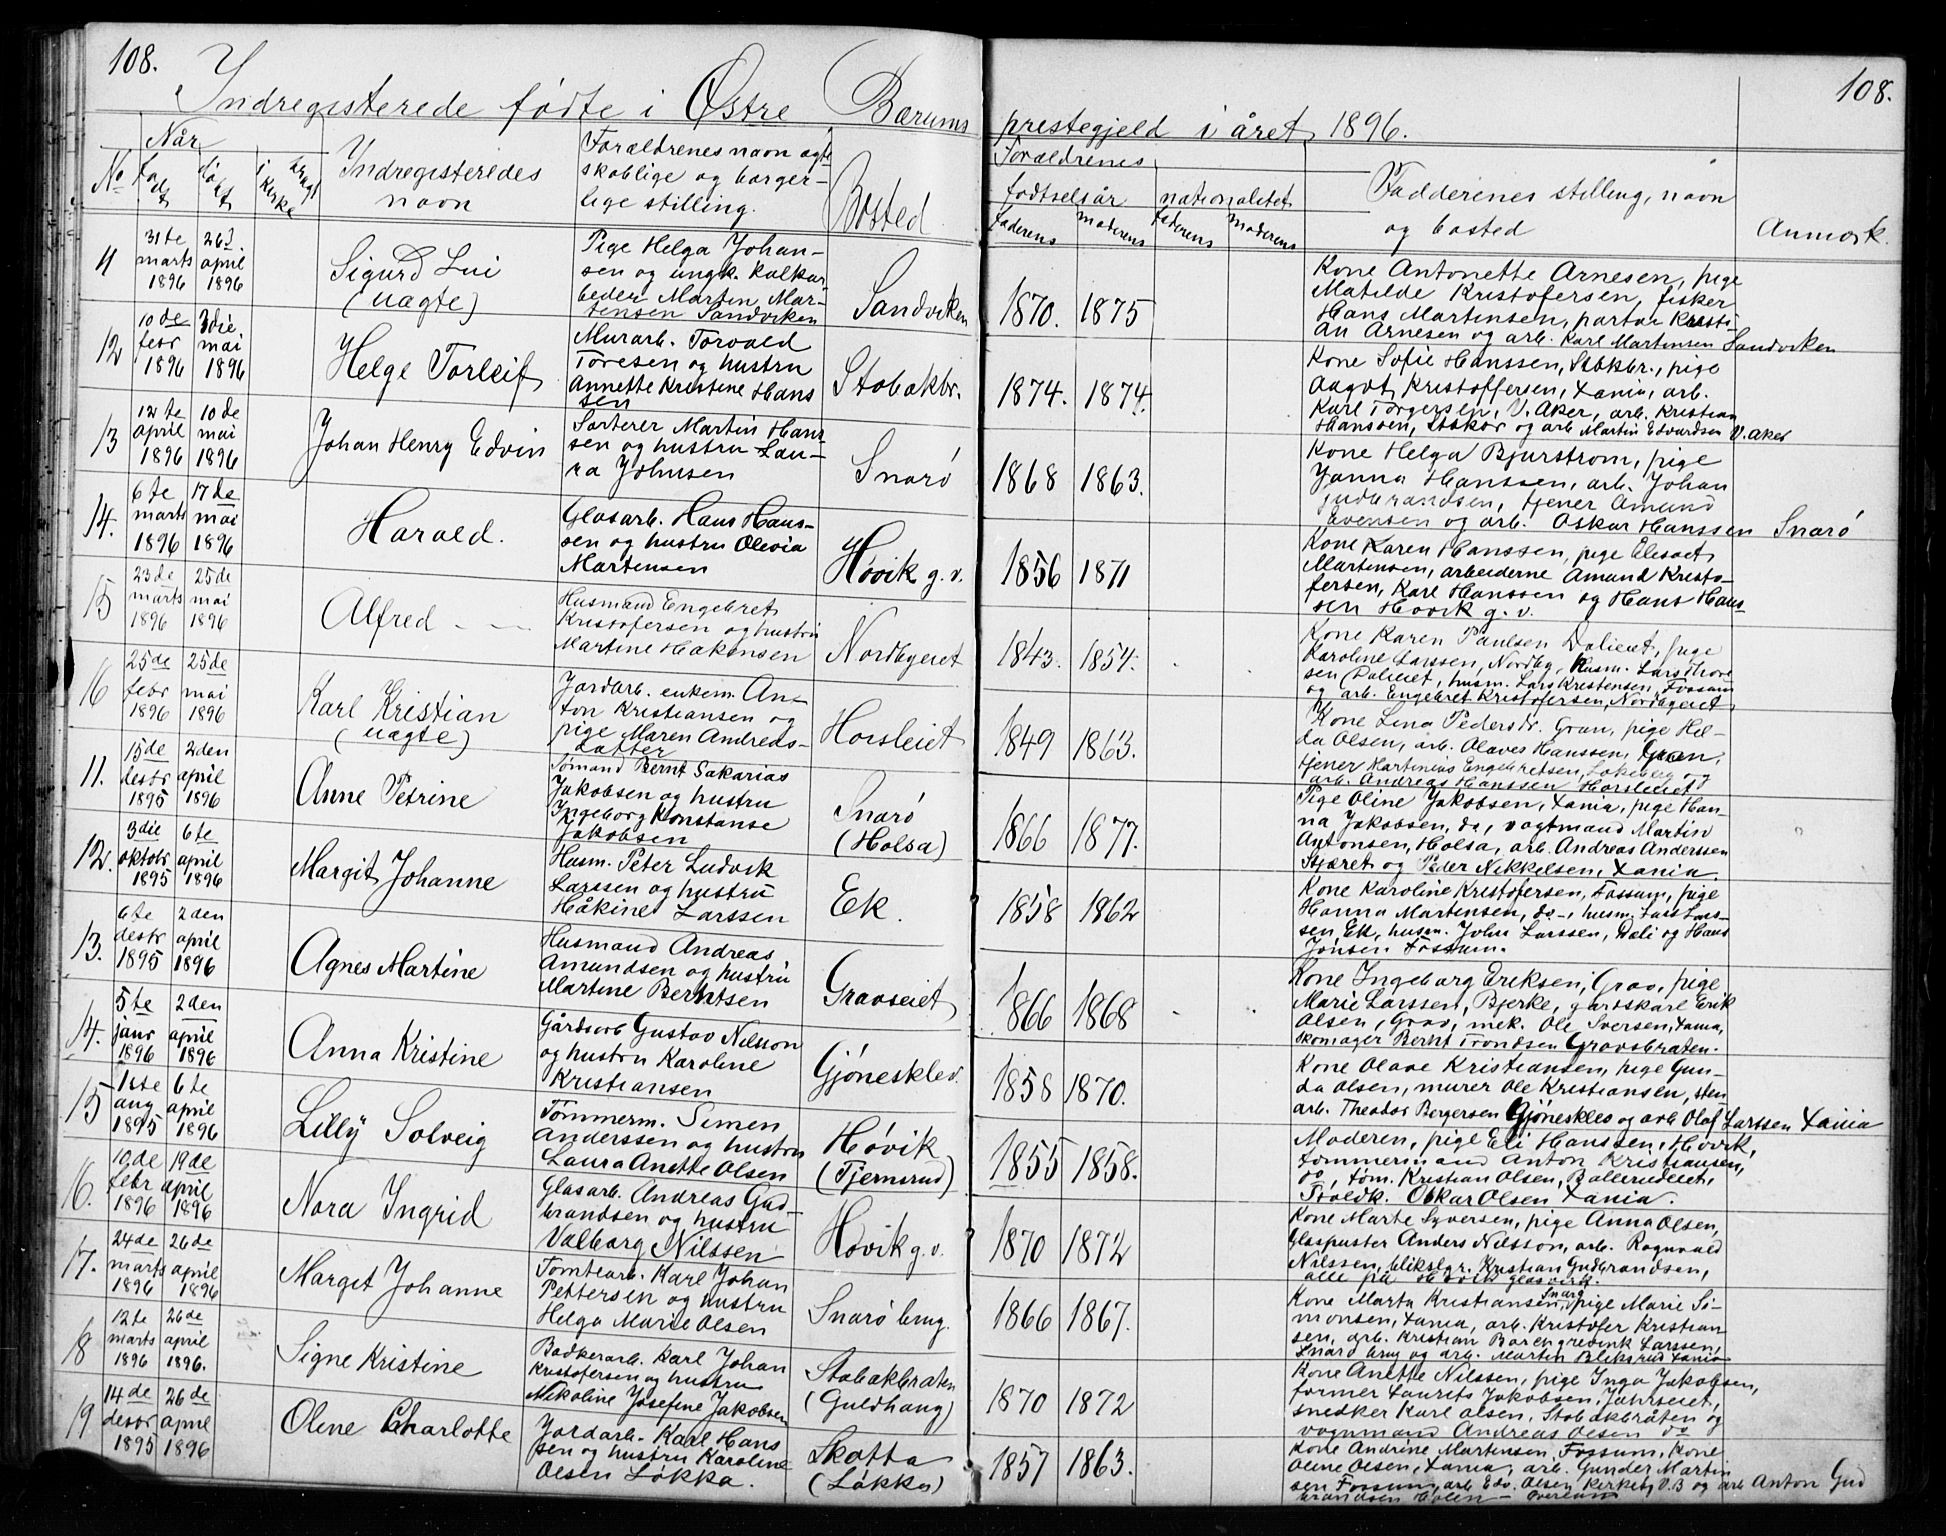 108.
108.
Indregisterede fødte i Østre Bærums prestegjeld i året 1896.
No
Når
født
døbt
i kirke
bragt
Indregisteredes navn
Forældrenes navn ægte
skablige og borger-
lige stilling.
Bosted
Forældrenes
fødtselsår
nationalitet
faderens
moderens
faderens
moderens
Fadderenes stilling, navn
og bosted
Anmærk.
11
31te marts 1896
26d. april 1896
Sigurd Lui
(uægte)
Pige Helga Johan-
sen og ungk. kalkar-
beider Martin Mar-
tensen Sandviken
Sandviken
1870.
1875
Kone Antonette Arnesen, pige
Matilde Kristofersen, fisker
Hans Martinsen, partur Kristi-
an Arnesen og arb. Karl Martensen Sandviken
12
10de febr 1896
3die mai 1896
Helge Torleif
Murarb. Torvald
Toresen og hustru
Annette Kristine Hans
sen
Stabækbr.
1874.
1874.
Kone Sofie Hanssen, Stbkbr., pige
Aagot Kristoffersen, Xania, arb.
Karl Torgersen, V. Aker, arb. Kristian
Hanssen, Stbkbr og arb Martin Edvardsen V. Aker
13
12te april 1896
10de mai 1896
Johan Henry Edvin
Sorterer Martin Hans-
sen og hustru Lau-
ra Johnsen
Snarø
1868
1863.
Kone Helga Bjurstrøm, pige
Janna Hanssen, arb. Johan
Gudbrandsen, tjener Amund
Evensen og arb. Oskar Hanssen Snarø
14.
6te marts 1896
17de mai 1896
Harald.
Glasarb. Hans Hans-
sen og hustru Olevia
Martensen
Høvik g. v.
1856
1871
Kone Karen Hanssen, pige Elesaet
Martensen, arbeiderne Amund Kristo-
fersen, Karl Hanssen og Hans Hans-
sen Høvik g. v.
15
23de marts 1896
25de mai 1896
Alfred
Husmand Engebret
Kristofersen og hustru
Martine Håkonsen
Nordbyeiet
1843.
1854.
Kone Karen Paulsen Dalieiet, pige
Karoline Larssen, Nordby, husm. Lars Thore
sen Dalieiet, husm. Lars Kristensen, Fossum
og arb. Engebret Kristofersen, Nordbyeiet
16
25de febr 1896
25de mai 1896
Karl Kristian
(uægte)
Jordarb. enkem. An-
ton Kristiansen og
pige Maren Andreas-
datter
Horsleiet
1849
1863.
Kone Lina Pedersdr. Gran, pige Hel-
da Olsen, arb. Olaves Hanssen, Gran,
tjener Martinius Engebretsen, Løkeberg og
arb. Andreas Hanssen Horsleiet
11.
15de desbr 1895
2den april 1896
Anne Petrine
Sømand Bernt Sakarias
Jakobsen og hustru
Ingeborg Konstanse
Jakobsen
Snarø
(Holsa)
1866
1877.
Pige Oline Jakobsen, Xania, pige Han-
na Jakobsen, do, vogtmand Martin
Antonsen, Holsa, arb. Andreas Anderssen
Skjæret og Peder Nikkelsen, Xania
12.
3die oktobr 1895
6te april 1896
Margit Johanne
Husm. Peter Ludvik
Larssen og hustru
Håkine Larssen
Ek.
1858
1862
Kone Karoline Kristofersen, Fossum, pige
Hanna Martensen, do-, husm. Lars Lars-
sen Ek, husm. John Larssen, Dæli og Hans
Jonsen Fossum.
13.
6te desbr 1895
2den april 1896
Agnes Martine
Husmand Andreas
Amundsen og hustru
Martine Berntsen
Gravseiet
1866
1868
Kone Ingeborg Eriksen, Grav, pige
Marie Larssen, Bjerke, gårdskarl Erik
Olsen, Grav, mek. Ole Iversen, Xania,
skomager Bernt Trondsen Gravsbraten.
14.
5te janr 1896
2den april 1896
Anna Kristine
Gårdsarb Gustav Nilsson
og hustru Karoline
Kristiansen
Gjønesklev.
1858
1870.
Kone Olave Kristiansen, pige Gun-
da Olsen, murer Ole Kristiansen, sten
arb. Theodor Bergersen Gjøneskleo og arb Olaf Larssen Xania
15
1ste aug 1895
6te april 1896
Lilly Solveig
Tømmerm. Simen
Anderssen og hustru
Laura Anette Olsen
Høvik
(Tjernsrud)
1855
1858.
Moderen, pige Eli Hanssen, Høvik,
tømmermand Anton Kristiansen,
do, tøm. Kristian Olsen, Ballerudeiet,
Troldk. Oskar Olsen Xania.
16.
10de febr 1896
19de april 1896
Nora Ingrid
Glasarb. Andreas Gud-
brandsen og hustru
Valborg Nilssen
Høvik g. v.
1870
1872
Kone Marte Syversen, pige Anna Olsen,
Glaspuster Anders Nilsson, arb. Ragnvald
Nilssen, blikslgr. Kristian Gudbrandsen,
alle på Høvik glasverk.
17.
24de marts 1896
26de april 1896
Margit Johanne
Tomtearb. Karl Johan
Pettersen og hustru
Helga Marie Olsen
Snarø brug.
1866
1867.
Kone Marta Kristiansen, Snarø, pige Marie Si-
monsen, Xania, arb. Kristofer Kristian
sen, arb. Kristian Barchgrevink Larssen,
Snarø brug og arb. Martin Bliksrud Xania
18
12te marts 1896
26de april 1896.
Signe Kristine
Bødkerarb. Karl Johan
Kristofersen og hustru
Nikoline Josefine Jakobsen
Stabækbraten
(Guldhaug)
1870
1872
Kone Anette Nilssen, pige Inga Jakobsen,
former Laurits Jakobsen, Jahrseiet,
snedker Karl Olsen, Stabækbråten og
vognmand Andreas Olsen do
19
14de desbr 1895
26de april 1896
Oline Charlotte
Jordarb. Karl Hans
sen og hustru Karoline
Olsen Løkka.
Skotta
(Løkka)
1857
1863.
Kone Andrine Martensen, Fossum, kone
Oline Olsen, Xania, arb. Gunder Martin
sen Fossum, arb. Edv. Olsen Kirkeby V.B og arb Anton Gud
brandsen Holen - Overlund